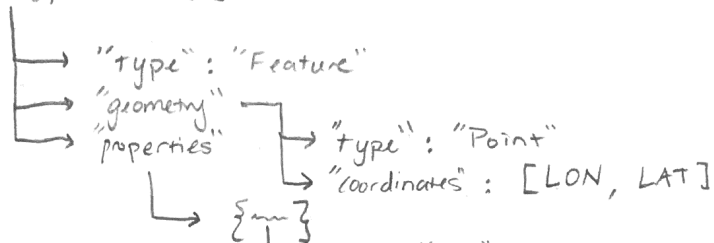 "type" : "Feature"
"geometry"
"properties"
"type" : "Point"
"coordinates" : [LON, LAT]
{~~}